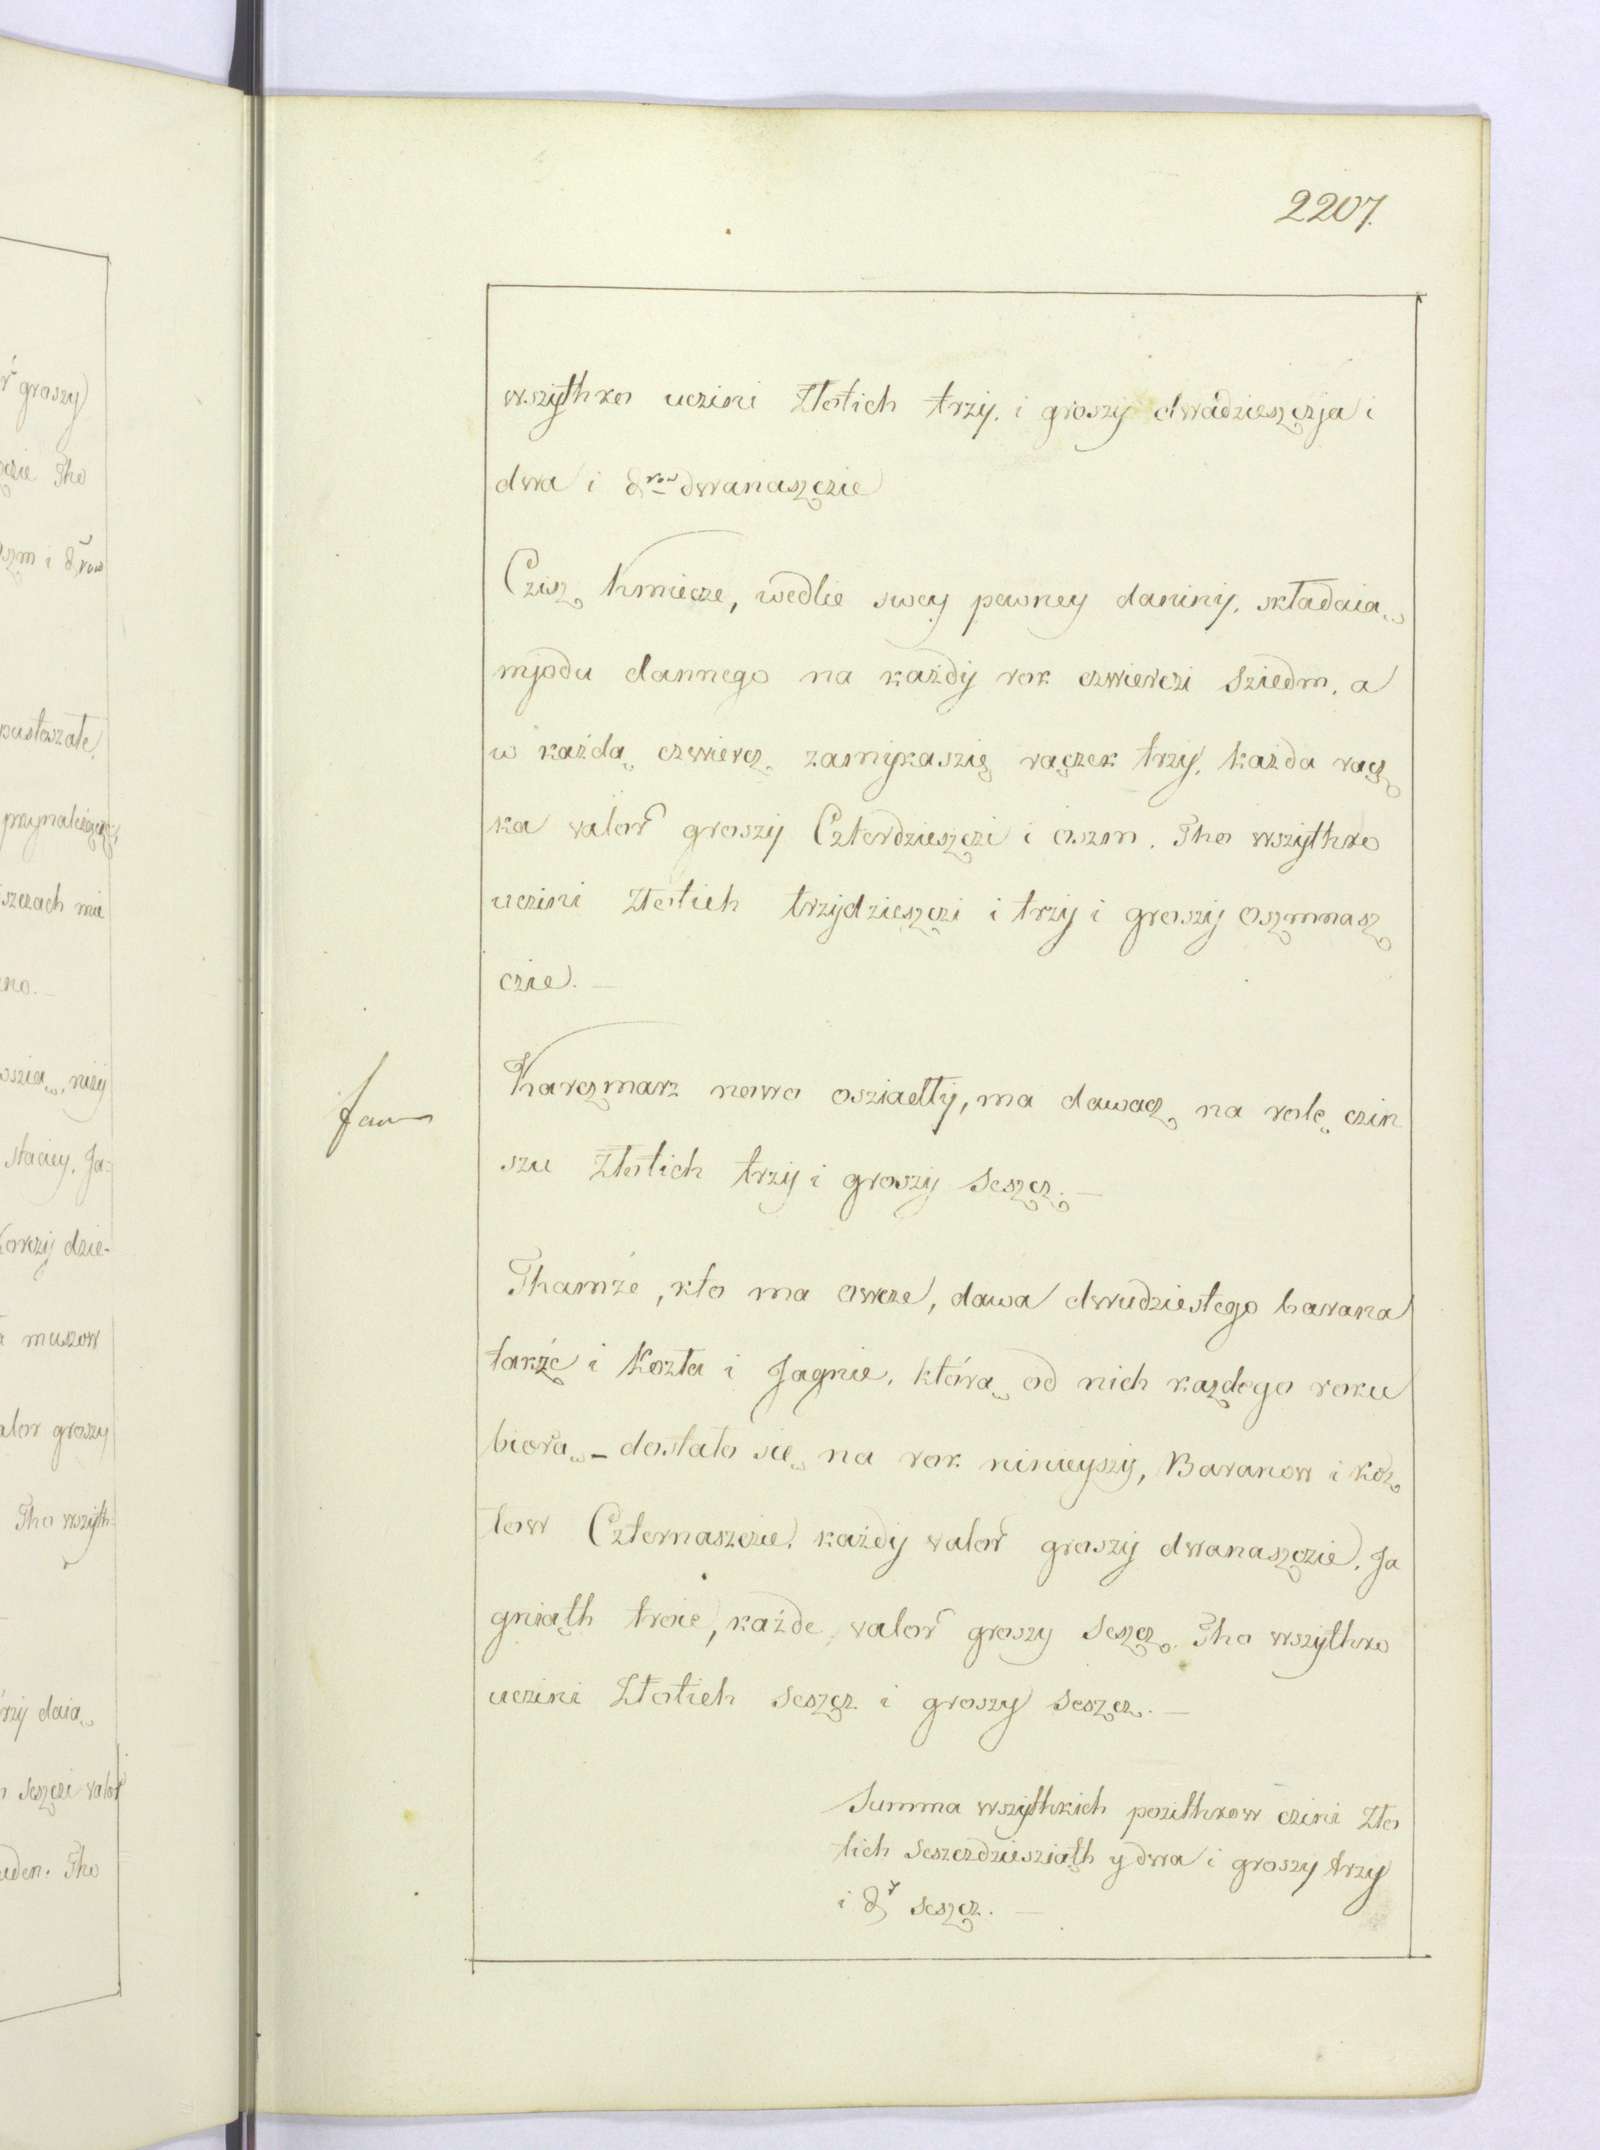 2207.
wszythko uczini Złotich trzy. i groszy dwadzieszczja i
dwa i d̶ʳᵒʷ dwanaszczie
Czisz Kmiecze, wedlie swey pewney daniny, składaią
mjodu dannego na każdy rok czwierczi Sziedm, a
w każdą czwiercz zamykaszię rączek trzy, każda rącz
ka valoŕ groszy Czterdzieszczi i oszm. Tho wszythko
uczini Złotich trzydzieszczi i trzy i groszy oszmnasz
czie. —
fau
Karczmarz nowo osziadły, ma dawacz na rolę czin
szu Złotich trzy i groszy Seszcz. —
Thamże, kto ma owcze, dawa dwudziestego barana
także i Kozła i Jagnie, którą od nich każdego roku
biorą – dostało się na rok ninieyszy, Baranow i koz
łow Czternaszczie, każdy valoŕ groszy dwanaszczie, Ja
gniąth troie, każde valoŕ groszy Seszcz. Tho wszythko
uczini Złotich Seszcz i groszy Seszcz. —
Summa wszythkich pozithkow czini Zło
tich Seszczdziesziąth y dwa i groszy trzy
i d̶ʳ seszcz. —
r groszy
czie Tho
oszm i d̶row
pustoszałe,
przynależącz
szczach ma
no. —
niży
staciey, Ja=
Korczy dzie-
muszow
valor groszy
Tho wszyth-
daią
Seszczi valoŕ
Tho